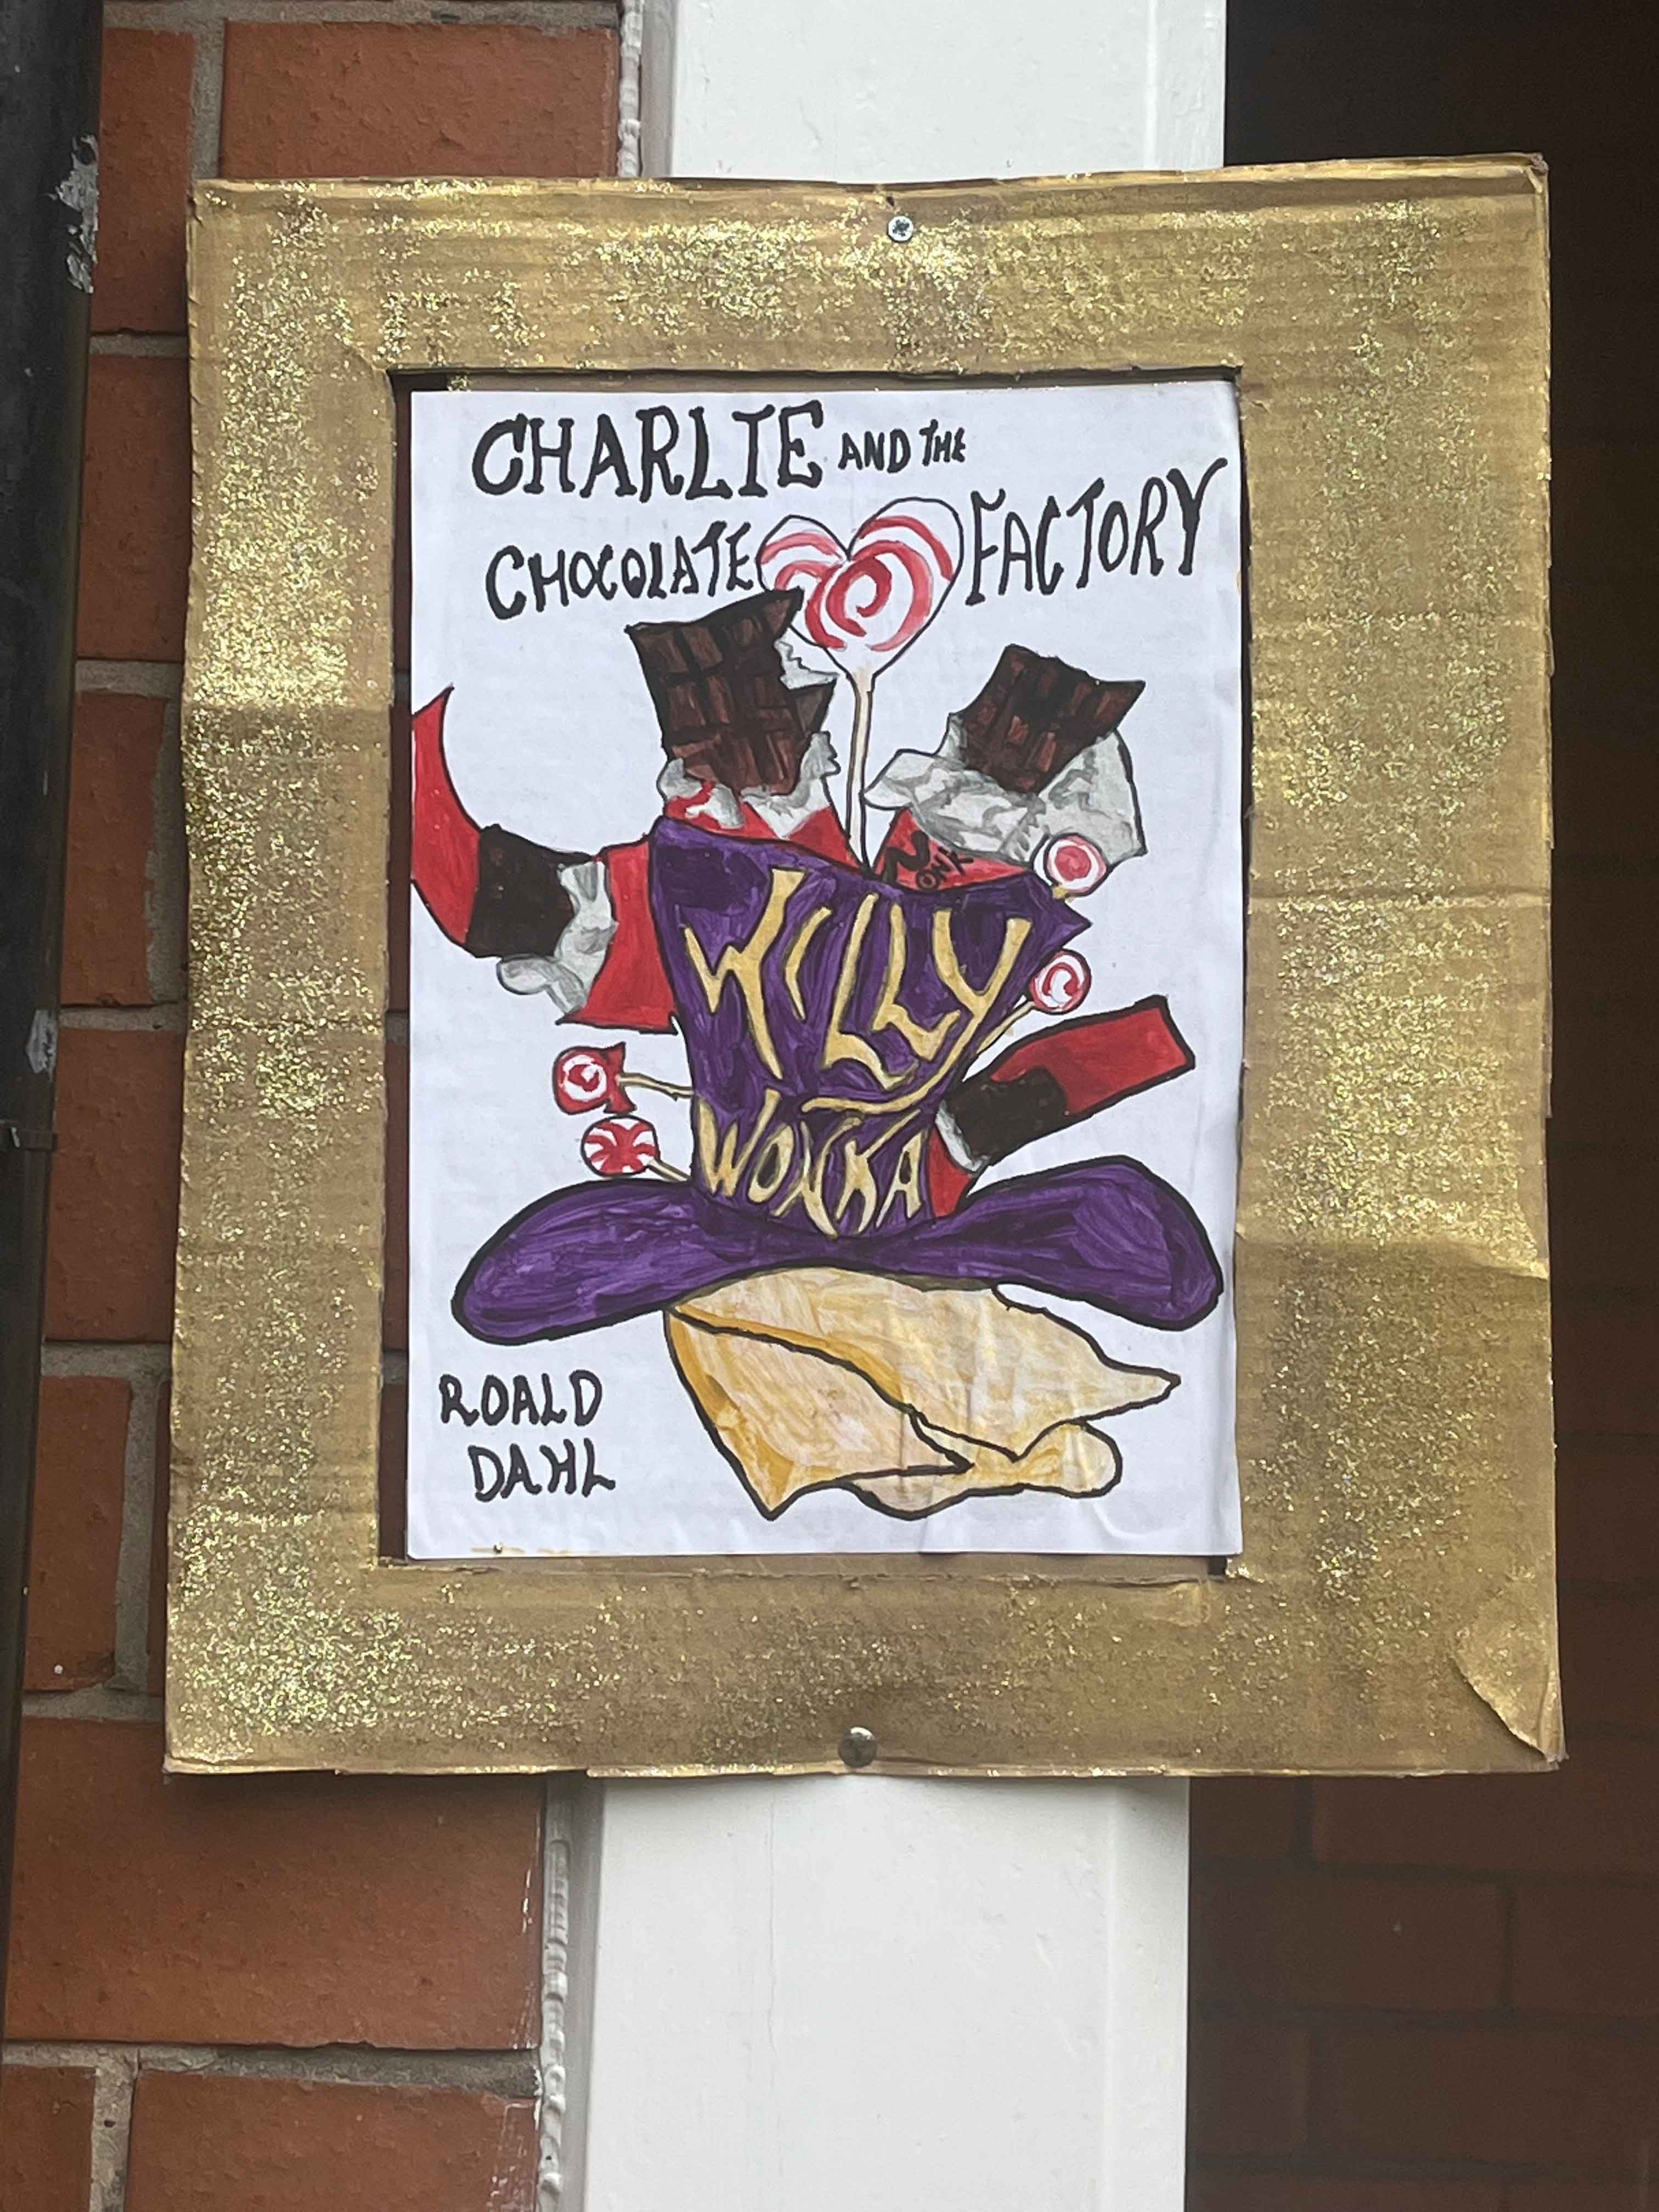 CHARLIE AND THE
CHOCOLATE FACTORY
WONK
WILLY
WONKA
ROALD
DAHL